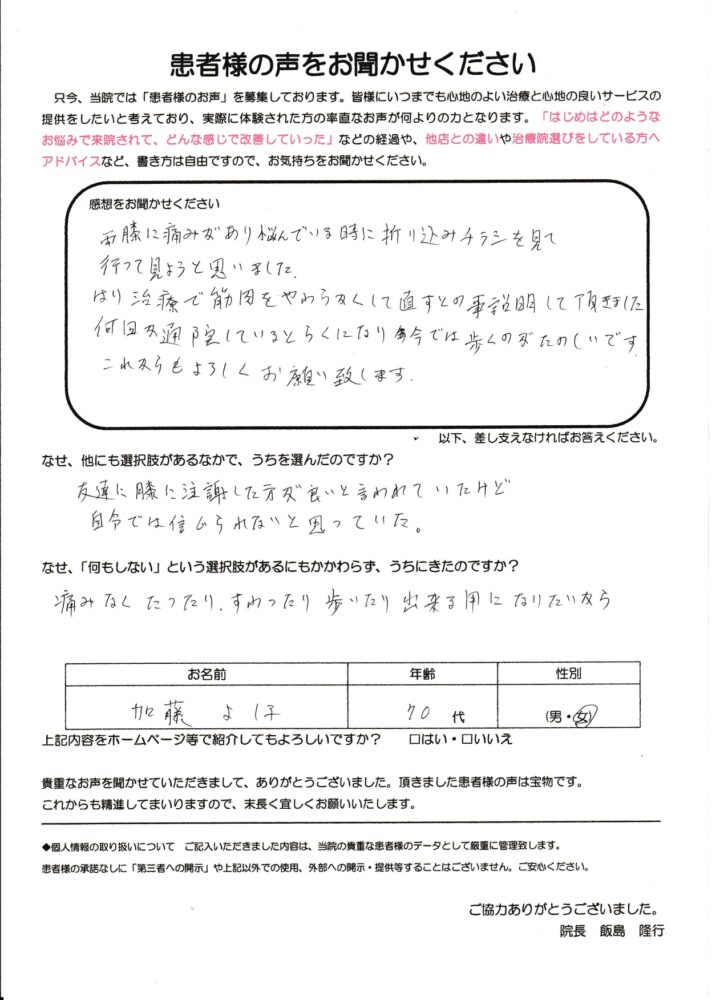 患者様の声をお聞かせください
只今、当院では「患者様のお声」を募集しております。皆様にいつまでも心地のよい治療と心地の良いサービスの
提供をしたいと考えており、実際に体験された方の率直なお声が何よりの力となります。「はじめはどのような
お悩みで来院されて、どんな感じで改善していった」などの経過や、他店との違いや治療院選びをしている方へ
アドバイスなど、書き方は自由ですので、お気持ちをお聞かせください。
感想をお聞かせください
両膝に痛みがあり悩んでいる時に折り込みチラシを見て
行って見ようと思いました.
はり治療で筋肉をやわらかくして直すとの事説明して頂きました
何回か通院しているとらくになり今では歩くのがたのしいです.
これからもよろしくお願い致します.
以下、差し支えなければお答えください。
なぜ、他にも選択肢があるなかで、うちを選んだのですか?
友達に膝に注謝した方が良いと言われていたけど
自分では信じられないと思っていた。
なせ、「何もしない」という選択肢があるにもかかわらず、うちにきたのですか?
痛みなくたったり、すわったり歩いたり出来る用になりたいから
お名前 年齢 性別
加藤 よし子 70 代 (男・女)
上記内容をホームページ等で紹介してもよろしいですか? □はい・□いいえ
貴重なお声を聞かせていただきまして、ありがとうございました。頂きました患者様の声は宝物です。
これからも精進してまいりますので、末長く宜しくお願いいたします。
◆個人情報の取り扱いについて ご記入いただきました内容は、当院の貴重な患者様のデータとして厳重に管理致します。
患者様の承諾なしに「第三者への開示」や上記以外での使用、外部への開示・提供等することはございません。ご安心ください。
ご協力ありがとうございました。
院長 飯島 隆行